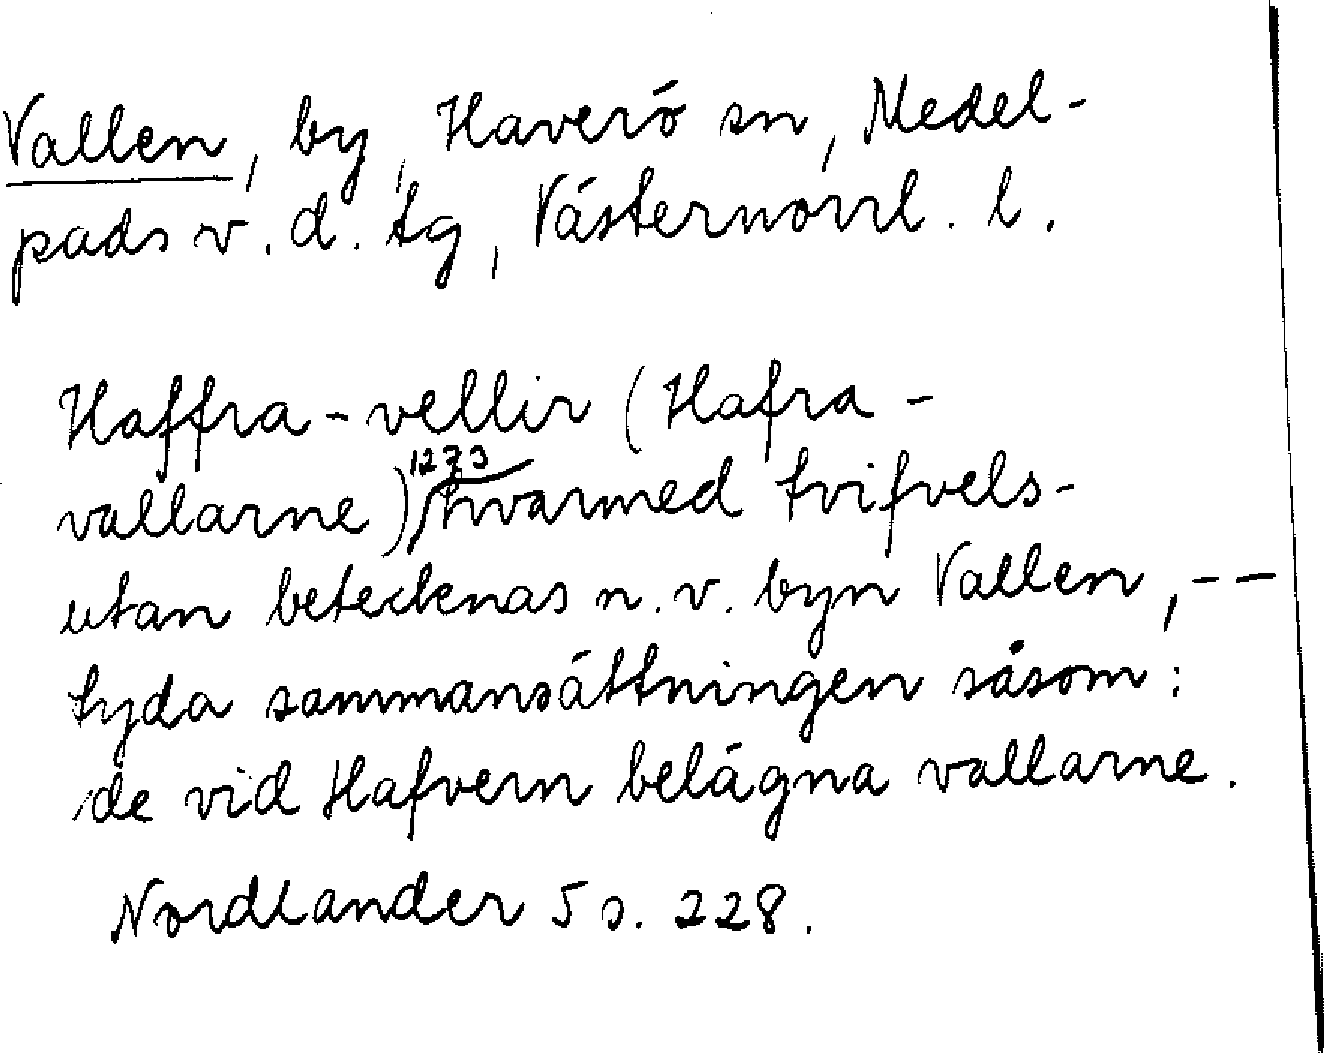 Vallen, by, Haverö sn, Medel-
pads v. d. tg, Västernorrl. l.
Haffra-vellir (Hafra-
vallarne) 1273 hvarmed tvifvels-
utan betecknas n. v. byn Vallen, --
tyda sammansättningen såsom:
de vid Hafvern belägna vallarne.
Nordlander 5 s. 228.